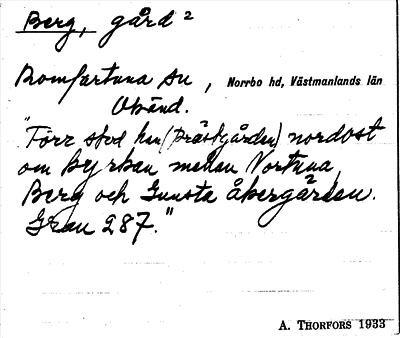 Berg, gård 2
Romfartuna sn, Norrbo hd, Västmanlands län
Obänd.
"Förr stod han (prästgården) nordost
om kyrkan mellan Nortuna,
Berg och Gunsta åbergärden.
Grau 287."
A. THORFORS 1933